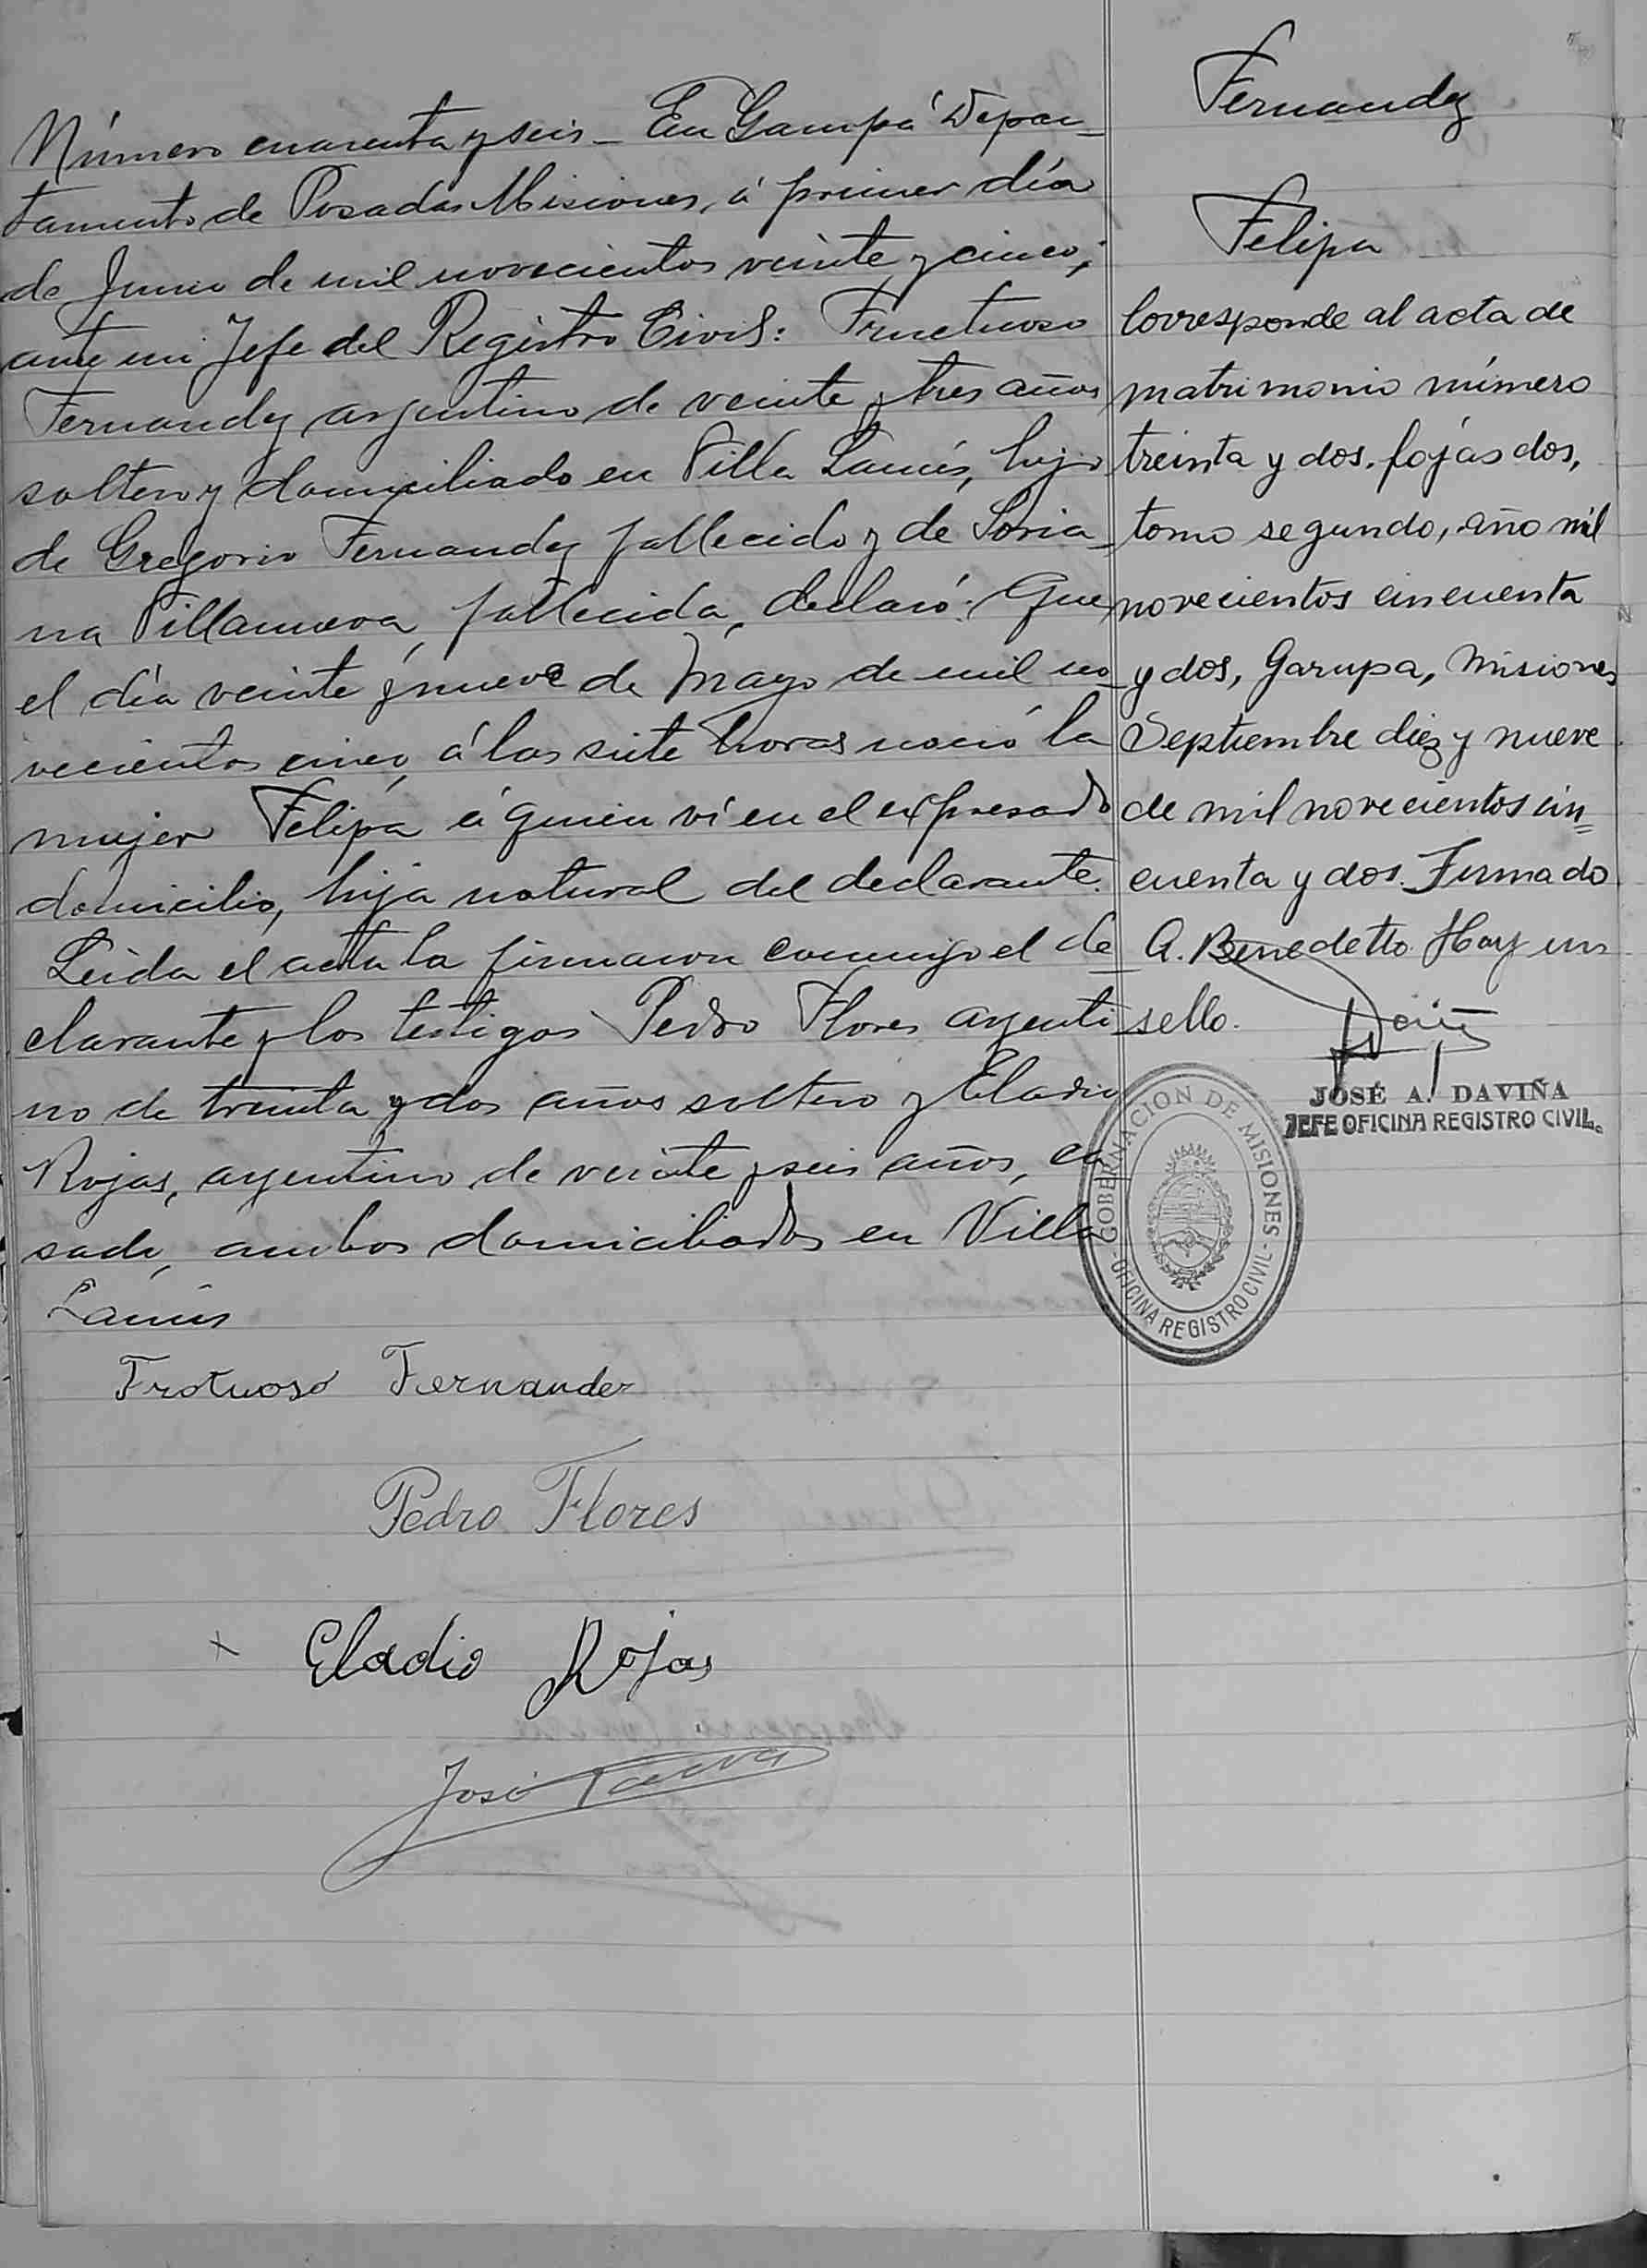 Número cuarenta y seis – En Garupá Depar-
tamento de Posadas Misiones, á primer día
de Junio de mil novecientos veinte y cinco,
ante mi Jefe del Registro Civil: Fructuoso
Fernandez argentino de veinte y tres años
soltero y domiciliado en Villa Lanús, hijo
de Gregorio Fernandez fallecido y de Soria-
na Villanueva, fallecida, declaró: Que
el día veinte y nueve de Mayo de mil no-
vecientos cinco, á las siete horas nació la
mujer Felipa á quien ví en el expresado
domicilio, hija natural del declarante.
Leida el acta la firmaron conmigo el de-
clarante y los testigos Pedro Flores argenti-
no de treinta y dos años soltero y Eladio
Rojas, argentino de veinte y seis años, ca-
sado, ambos domiciliados en Villa
Lanús
Frotuoso Fernandez
Pedro Flores
x Eladio Rojas
José
Fernandez
Felipa
Corresponde al acta de
matrimonio número
treinta y dos, fojas dos,
tomo segundo, año mil
novecientos cincuenta
y dos, Garupa, Misiones
Septiembre diez y nueve
de mil novecientos cin=
cuenta y dos. Firmado
A. Benedetto. Hay un
sello.
JOSÉ A. DAVIÑA
JEFE OFICINA REGISTRO CIVIL.
GOBERNACION DE MISIONES
- OFICINA REGISTRO CIVIL -